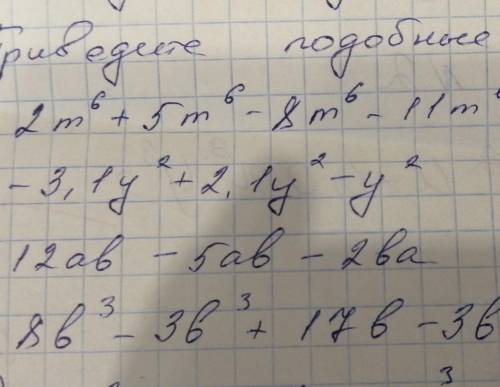 Приведите подобные
2m⁶ + 5m⁶ - 8m⁶ - 11m⁶
-3,1y² + 2,1y² - y²
12ав - 5ав - 2ва
8в³ - 3в³ + 17в - 3в
3